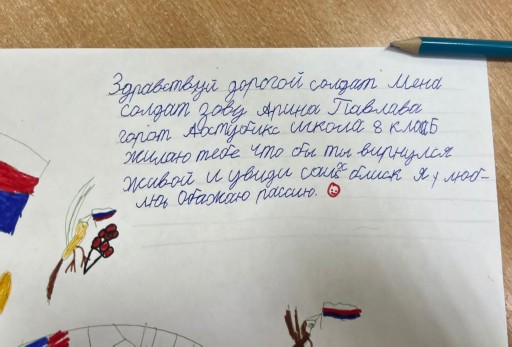 Здравствуй дорогой солдат Меня
солдат зову Арина Павлава
горот Ахтубикс школа 8 класБ
жилаю тебе что бы ты вирнулся
живой и увиди близк я люб-
лю, Обажаю рассию.